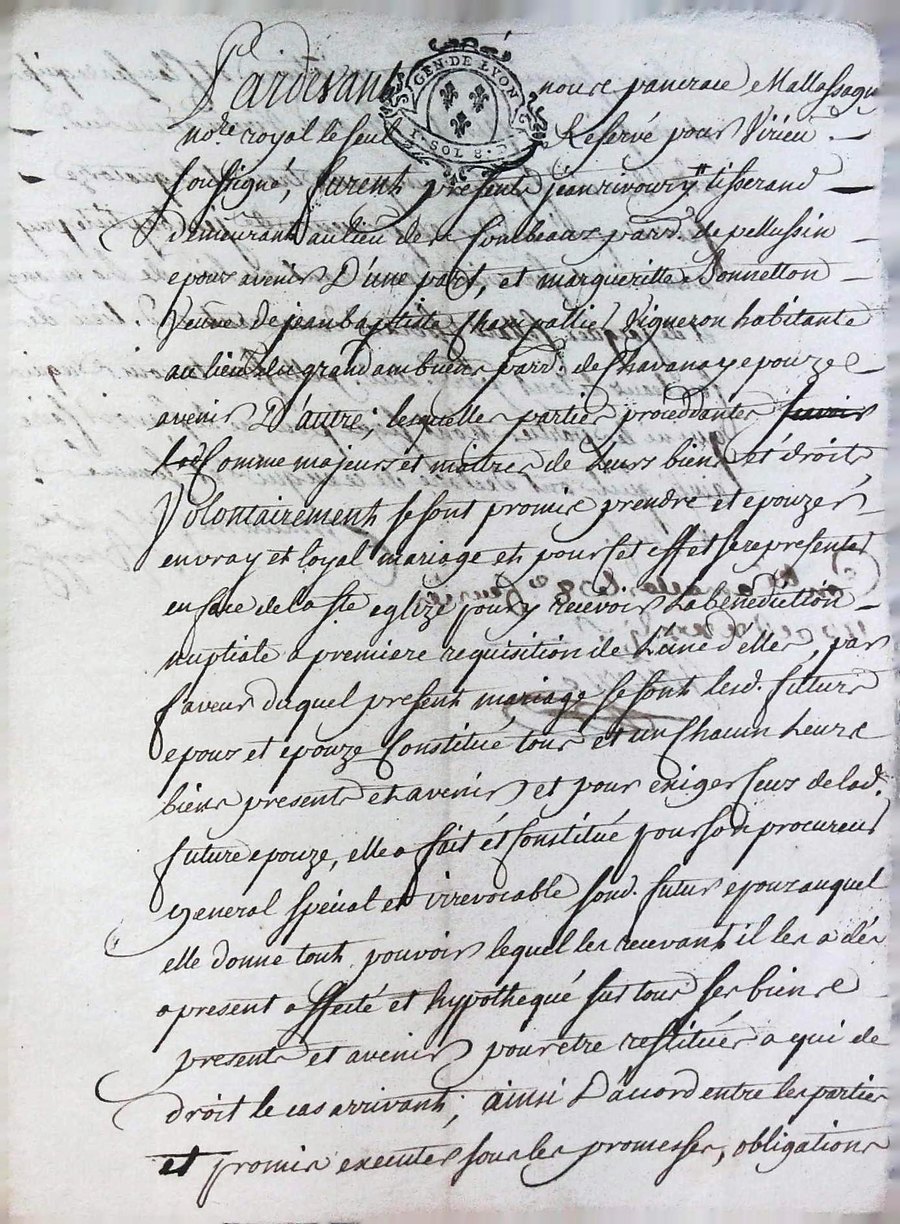 Pardevant nous
GEN·DE LYON
1. SOL 8. D.
no.re royal le seul Reservé pour Virieu
soussigné, furent presents jean rivoury tisserand
demeurant au lieu des Combeaux parr. de pellussin
epoux avenir D'une part, et margueritte Bonnetton
Veuve de jean baptiste Champallier Vigneron habitante
au lieu du grand ambuens parr. de Chavanay epouze
avenir D'autre, lesquelles parties proceddantes
Comme majeurs et maitres de Leurs biens et droits
Volontairement se sont promis prendre et epouzer
en vray et loyal mariage et pour cet effet se representer
en face de la ste eglize pour y recevoir La benediction
nuptiale a premiere requisition de L'une d'elles, par
faveur duquel present mariage se sont lesd. futurs
epoux et epouze Constitué tous et un Chacun Leurs
biens presents et avenir et pour exiger Ceux de lad.
future epouze, elle a fait et Constitué pour son procureur
General spécial et irrevocable sond. futur epoux auquel
elle donne tout pouvoir lequel les recevant il les a dès
a present affecté et hypothequé sur tous ses biens
presents et avenir pour etre restitués a qui de
droit le cas arrivant; ainsi D'acord entre les parties
et promis executer sous les promesses, obligations